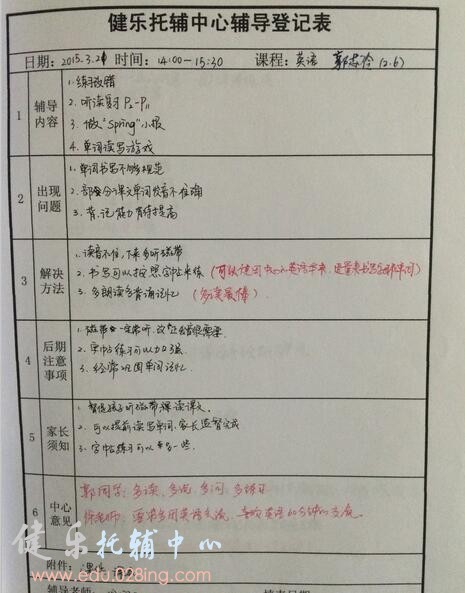 健乐托辅中心辅导登记表
日期: 2015.3.21 时间: 14:00-15:30 课程: 英语 (2.6)
1 辅导内容
1. 练习改错
2. 听读 P2-P11
3. 做"Spring"小报
4. 单词读写游戏
2 出现问题
1. 单词书写不够规范
2. 部分课文单词发音不准确
3. 背、记能力有待提高
3 解决方法
1. 读音不准,下来多听磁带
2. 书写可以按照字帖来练
3. 多朗读多背诵记忆 (多读最棒)
4 后期注意事项
1. 磁带一定常听,
2. 字帖练习可以加强
3. 经常巩固单词记忆
5 家长须知
1. 督促孩子听磁带,课读课文。
2. 可以提前读写单词,家长监督完成
3. 字帖练习可以 一些.
6 中心意见
郭同学: 多读、多说、多问、多练习
徐老师: 要求多用英语交流,
健乐托辅中心
附件:
www.edu.128ing.com
辅导老师: 填表日期